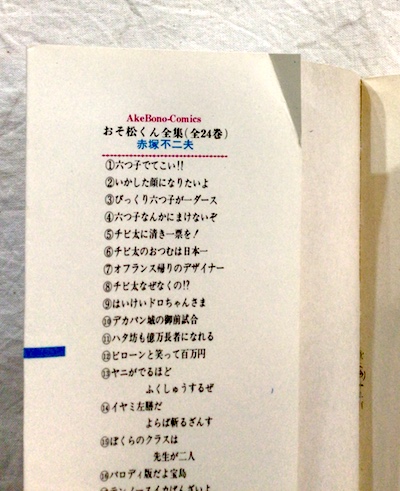 AkeBono-Comics
おそ松くん全集(全24巻)
赤塚不二夫
①六つ子でてこい!!
②いかした顔になりたいよ
③びっくり六つ子が一ダース
④六つ子なんかにまけないぞ
⑤チビ太に清き一票を!
⑥チビ太のおつむは日本一
⑦オフランス帰りのデザイナー
⑧チビ太なぜなくの!?
⑨はいけいドロちゃんさま
⑩デカパン城の御前試合
⑪ハタ坊も億万長者になれる
⑫ビローンと笑って百万円
⑬ヤニがでるほど
ふくしゅうするぜ
⑭イヤミ左膳だ
よらば斬るざんす
⑮ぼくらのクラスは
先生が二人
⑯パロディ版だよ宝島